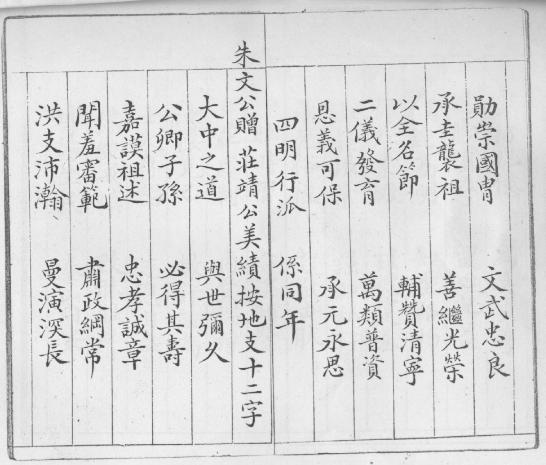 勛崇國胄 文武忠良
承圭襲祖 善繼光榮
以全名節 輔贊清寧
二儀發育 萬類普資
恩義可保 承元永思
四明行派 係同年
朱文公贈莊靖公美績按地支十二字
大中之道 與世彌久
公卿子孫 必得其壽
嘉謨祖述 忠孝誠章
聞羞審範 肅政綱常
洪支沛瀚 曼演深長